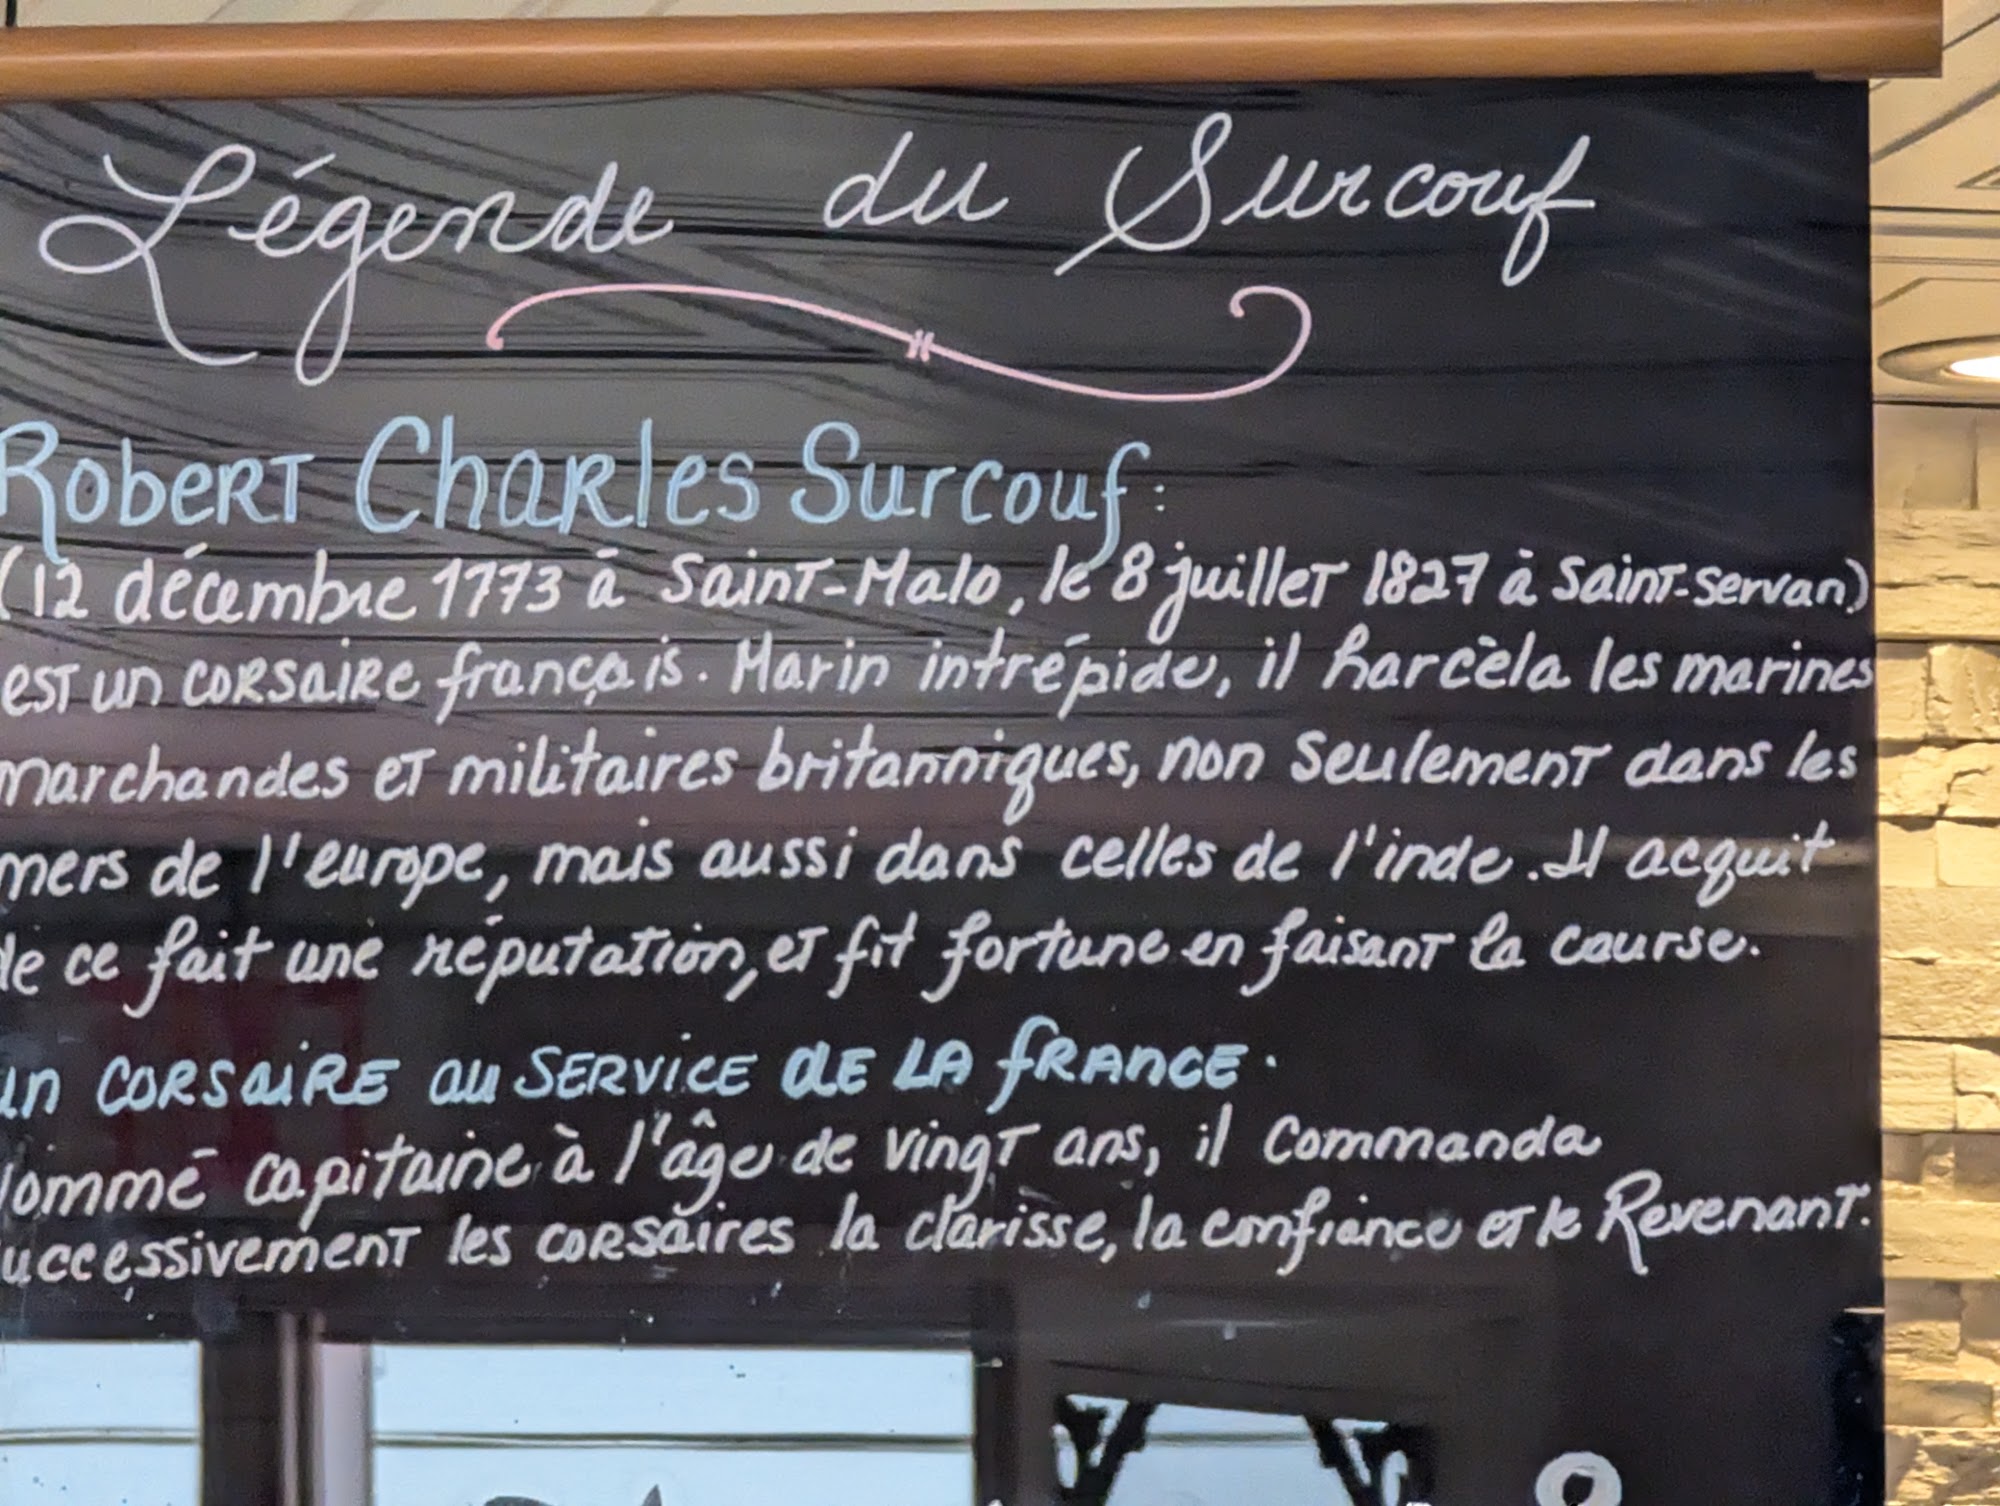 Légende du Surcouf
Robert Charles Surcouf :
(12 décembre 1773 à Saint-Malo, le 8 juillet 1827 à Saint-Servan)
est un corsaire français. Marin intrépide, il harcèla les marines
marchandes et militaires britanniques, non seulement dans les
mers de l'europe, mais aussi dans celles de l'inde. Il acquit
de ce fait une réputation, et fit fortune en faisant la course.
un corsaire au service de la france.
ommé capitaine à l'âge de vingt ans, il commanda
uccessivement les corsaires la clarisse, la confiance et le Revenant.